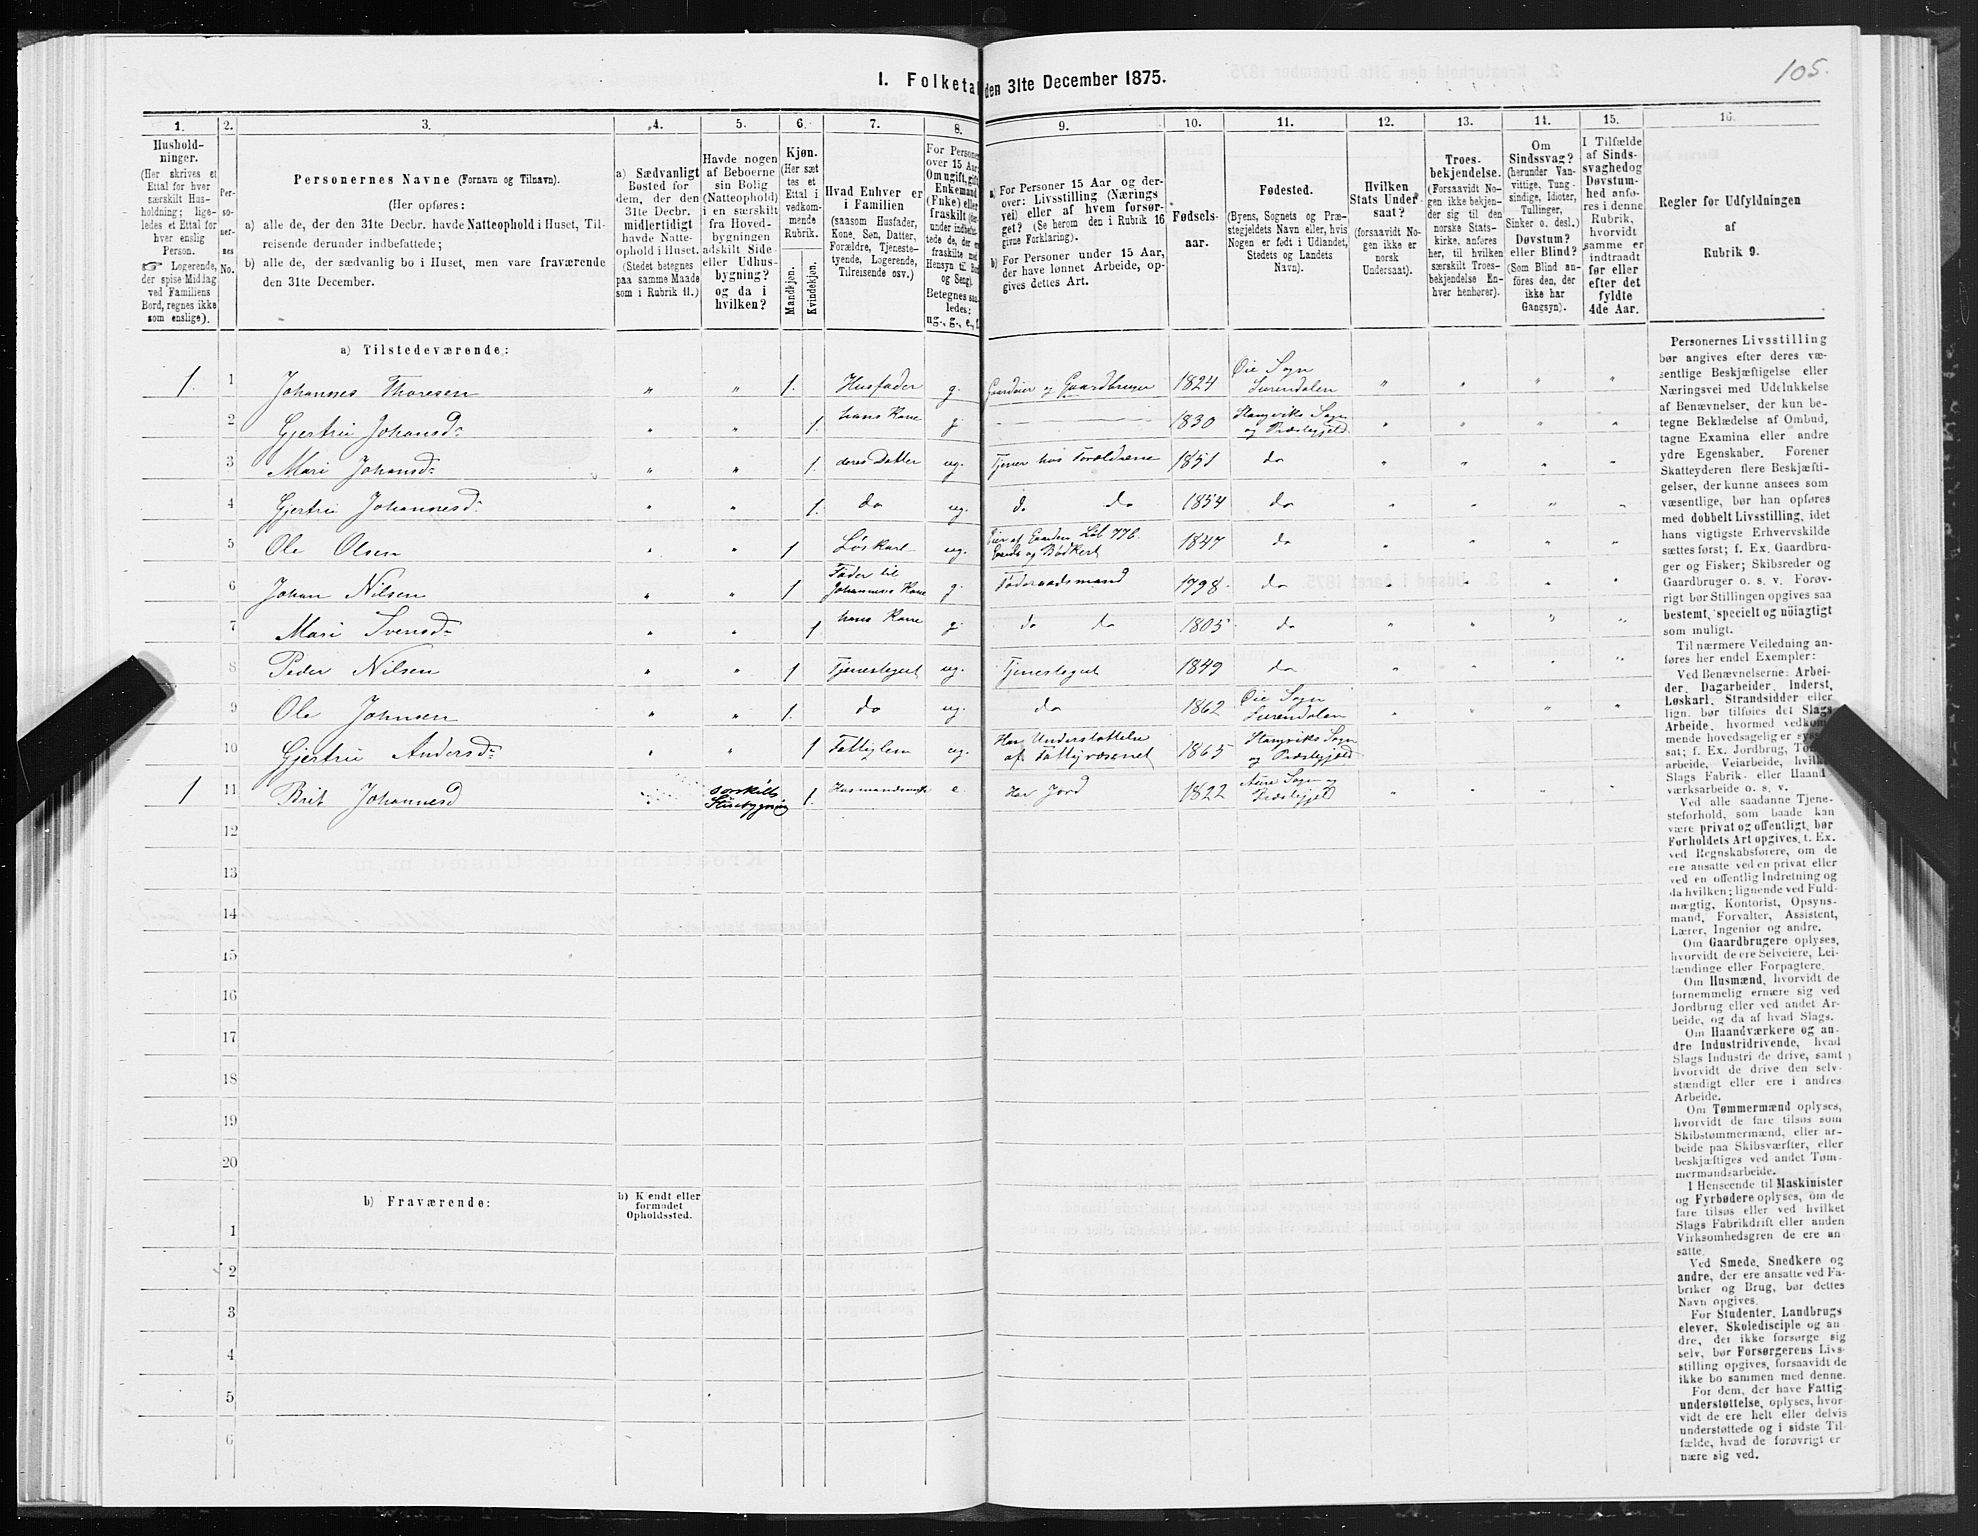 105.
1. Folketal den 31te December 1875.
1.
Hushold-
ninger.
(Her skrives et
Ettal for hver
særskilt Hus-
holdning; lige-
ledes et Ettal for
hver enslig
Person.
☞ Logerende,
der spise Middag
ved Familiens
Bord, regnes ikke
som enslige).
2.
Per-
so-
ner-
nes
No.
3.
Personernes Navne (Fornavn og Tilnavn).
(Her opføres:
a) alle de, der den 31te Decbr. havde Natteophold i Huset, Til-
reisende derunder indbefattede;
b) alle de, der sædvanlig bo i Huset, men vare fraværende
den 31te December.
4.
a) Sædvanligt
Bosted for
dem, der den
31te Decbr.
midlertidigt
havde Natte-
ophold i Huset.
(Stedet betegnes
paa samme Maade
som i Rubrik 11.)
5.
Havde nogen
af Beboerne
sin Bolig
(Natteophold)
i en særskilt
fra Hoved-
bygningen
adskilt Side-
eller Udhus-
bygning?
og da i
hvilken?
6.
Kjøn.
(Her sæt-
tes et
Ettal i
vedkom-
mende
Rubrik.
Mandkjøn.
Kvindekjøn.
7.
Hvad Enhver er
i Familien
(saasom Husfader,
Kone, Søn, Datter,
Forældre, Tjeneste-
tyende, Logerende,
Tilreisende osv.)
8.
For Personer
over 15 Aar:
Om ugift, gift,
Enkemand
(Enke) eller
fraskilt
Betegnes saa-
ledes:
ug., g., e., f.
9.
a) For Personer 15 Aar og der-
over: Livsstilling (Nærings-
vei) eller af hvem forsør-
get? (Se herom den i Rubrik 16
givne Forklaring).
b) For Personer under 15 Aar,
der have lønnet Arbeide, op-
gives dettes Art.
10.
Fødsels-
aar.
11.
Fødested.
(Byens, Sognets og Præ-
stegjeldets Navn eller, hvis
Nogen er født i Udlandet,
Stedets og Landets
Navn).
12.
Hvilken
Stats Under-
saat?
(forsaavidt No-
gen ikke er
norsk
Undersaat).
13.
Troes-
bekjendelse.
(Forsaavidt No-
gen ikke bekjen-
der sig til den
norske Stats-
kirke, anføres
her, til hvilken
særskilt Troes-
bekjendelse En-
hver henhører).
14.
Om
Sindssvag?
(herunder Van-
vittige, Tung-
sindige, Idioter,
Tullinger,
Sinker o. desl.)
Døvstum?
eller Blind?
(Som Blind an-
føres den, der
ikke har
Gangsyn).
15.
I Tilfælde
af Sinds-
svaghed og
Døvstum-
hed anfø-
res i denne
Rubrik,
hvorvidt
samme er
indtraadt
før eller
efter det
fyldte
4de Aar.
16.
Regler for Udfyldningen
af
Rubrik 9.
a) Tilstedeværende:
1. 1 Johannes Thoresen " " 1. Husfader g. Gaardeier og Gaardbruger 1824 Øie Sogn Surendalen " " " "
2 Gjertru Johansd: " " 1 hans Kone g. 1830 Stangviks Sogn og Præstegjeld. " " " "
3 Mari Johansd: " " 1. deres Datter ug. Tjener hos Forældrene 1851 do " " " "
4 Gjertru Johannesd: " " 1. do ug. do do 1854 do " " " "
5 Ole Olsen " " 1 Løskarl ug. Eier af Gaarden Löb 776. og Bödkert 1847 do " " " "
6 Johan Nilsen " " 1 Fader til Johannes's Kone g. Föderaadsmand 1798 do " "
7 Mari Svensd: " " 1 hans Kone g. do do 1805 do " " " "
8 Peder Nilsen " " 1 Tjenestegut ug. Tjenestegut 1849 do " " " "
9 Ole Johnsen " " 1. do ug. do 1862 Øie Sogn Surendalen " " " "
10 Gjertru Andersd: " " 1 Fattiglem ug. Har Understøttelse af Fattigvæsenet 1865 Stangviks Sogn og Præstegjeld
1 11 Brit Johannesd særskilt Sidebygning 1. e Har Jord 1822 Aure Sogn og Præstegjeld " " " "
12
13
14
15
16
17
18
19
20
b) Fraværende:
b) Kjendt eller
formodet
Opholdssted.
1
2
3
4
5
6
Personernes Livsstilling
bør angives efter deres væ-
sentlige Beskjæftigelse eller
Næringsvei med Udelukkelse
af Benævnelser, der kun be-
tegne Beklædelse af Ombud,
tagne Examina eller andre
ydre Egenskaber. Forener
Skatteyderen flere Beskjæfti-
gelser, der kunne ansees som
væsentlige, bør han opføres
med dobbelt Livsstilling, idet
hans vigtigste Erhvervskilde
sættes først; f. Ex. Gaardbru-
ger og Fisker; Skibsreder og
Gaardbruger o. s. v. Forøv-
rigt bør Stillingen opgives saa
bestemt, specielt og nøiagtigt
som muligt.
Til nærmere Veiledning an-
føres her endel Exempler:
Ved Benævnelserne: Arbei-
der, Dagarbeider, Inderst,
Løskarl, Strandsidder eller
lign. bør tilføies det Slags
Arbeide, hvormed vedkom-
mende hovedsagelig er syssel-
sat; f. Ex. Jordbrug, Tom-
arbeide, Veiarbeide, hvilket
Slags Fabrik- eller Haand-
værksarbeide o. s. v.
Ved alle saadanne Tjene-
steforhold, som baade kan
være privat og offentligt, bør
Forholdets Art opgives, f. Ex.
ved Regnskabsførere, om de
ere ansatte ved en privat eller
ved en offentlig Indretning og
da hvilken; lignende ved Fuld-
mægtig, Kontorist, Opsyns-
mand, Forvalter, Assistent,
Lærer, Ingeniør og andre.
Om Gaardbrugere oplyses,
hvorvidt de ere Selveiere, Lei-
lændinge eller Forpagtere.
Om Husmænd, hvorvidt de
fornemmelig ernære sig ved
Jordbrug eller ved andet Ar-
beide, og da af hvad Slags.
Om Haandværkere og an-
dre Industridrivende, hvad
Slags Industri de drive, samt
hvorvidt de drive den selv-
stændigt eller ere i andres
Arbeide.
Om Tømmermænd oplyses,
hvorvidt de fare tilsøs som
Skibstømmermænd, eller ar-
beide paa Skibsværfter, eller
beskjæftiges ved andet Tøm-
mermandsarbeide.
I Henseende til Maskinister
og Fyrbødere oplyses, om de
fare tilsøs eller ved hvilket
Slags Fabrikdrift eller anden
Virksomhedsgren de ere an-
satte.
Ved Smede, Snedkere og
andre, der ere ansatte ved Fa-
briker og Brug, bør dettes
Navn opgives.
For Studenter, Landbrugs-
elever, Skoledisciple og an-
dre, der ikke forsørge sig
selv, bør Forsørgerens Livs-
stilling opgives, forsaavidt de
ikke bo sammen med denne.
For dem, der have Fattig-
understøttelse, oplyses, hvor-
vidt de ere helt eller delvis
understøttede og i sidste Til-
fælde, hvad de forøvrigt er-
nære sig ved.